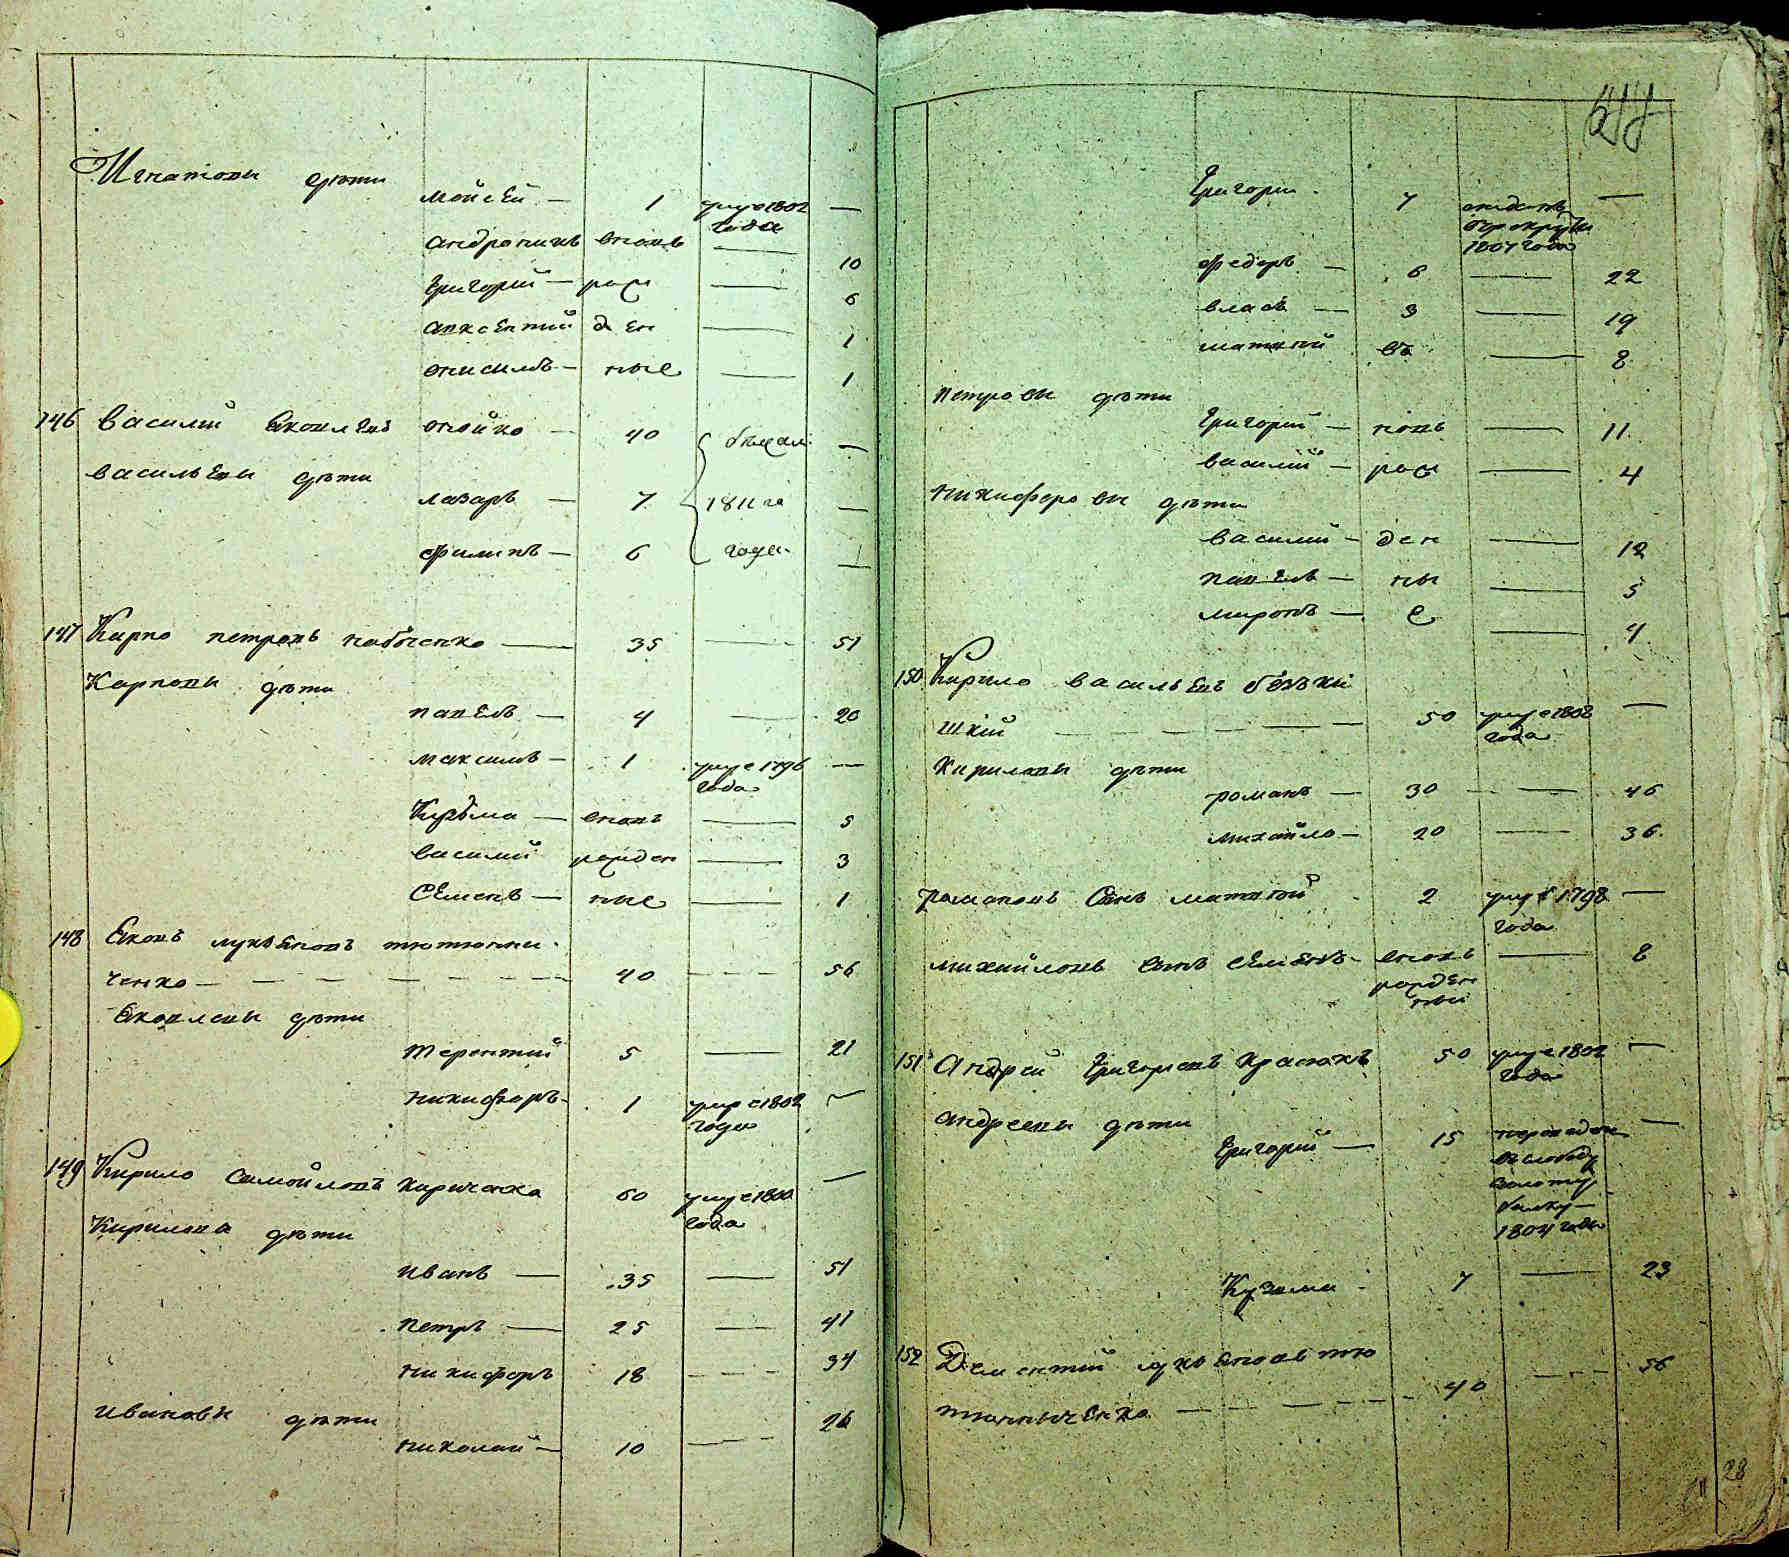 Игнатовы дѣти
Мойсей — 1 умре 1802 —
года
андроникъ вновь — 10
Григорий — рож — 6
авксентий ден — 1
онисимъ — ные — 1
146 Василий Яковлевъ
40 бежал —
Васильевы дѣти
лазарь — 7 1811 го —
филипъ — 6 года —
147 Карпо петровъ — 35 — 51
Карповы дѣти
павелъ — 4 — 20
максимъ — 1 умре 1796 —
года
Кузьма — вновь — 5
василий рожден — 3
Семенъ — ные — 1
148 Яковъ лукьяновъ тютюнни
ченко — 40 — 56
Яковлевы дѣти
терентий 5 — 21
никифоръ — 1 умре 1802 —
года
149 Кирило Самойловъ 60 умре 1800 —
года
Кирилова дѣти
иванъ — 35 — 51
петръ — 25 — 41
никифоръ 18 — 34
ивановы дѣти
николай — 10 — 26
Григорий 7 —
1807 года
федоръ — 6 — 22
власъ — 3 — 19
матвий въ — 8
петровы дѣти
Григорий — новь — 11
василий — рож — 4
никифоровы дѣти
василий — ден — 12
павелъ — ны — 5
миронъ — е — 4
150 Кирило васильевъ
шкій — 50 умре 1802 —
года
Кириловы дѣти
романъ — 30 — 46
михайло — 20 — 36
романовъ сынъ матвий 2 умре 1798 —
года
михайловъ сынъ семенъ — вновь — 8
рожден
ный
151 Андрей Григорьевъ Красюкъ 50 умре 1802 —
года
андреевы дѣти
Григорий — 15 переведен —
въ слободу
золотую
балку —
1804 года
Кузьма 7 — 23
152 Дементий лукьяновъ тю
тюнныченко — 40 — 56
28